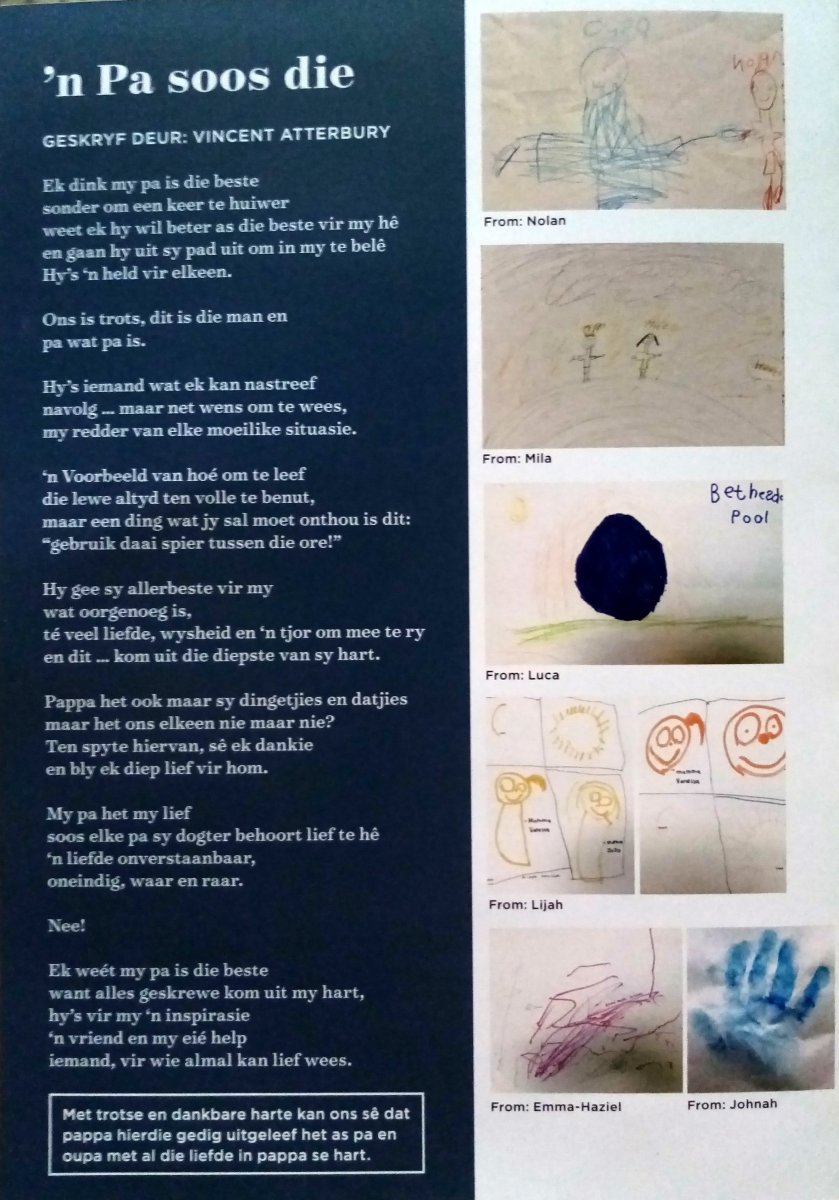 ’n Pa soos die
GESKRYF DEUR: VINCENT ATTERBURY
Ek dink my pa is die beste
sonder om een keer te huiwer
weet ek hy wil beter as die beste vir my hê
en gaan hy uit sy pad uit om in my te belê
Hy’s ‘n held vir elkeen.
Ons is trots, dit is die man en
pa wat pa is.
Hy’s iemand wat ek kan nastreef
navolg ... maar net wens om te wees,
my redder van elke moeilike situasie.
‘n Voorbeeld van hoé om te leef
die lewe altyd ten volle te benut,
maar een ding wat jy sal moet onthou is dit:
“gebruik daai spier tussen die ore!”
Hy gee sy allerbeste vir my
wat oorgenoeg is,
té veel liefde, wysheid en ‘n tjor om mee te ry
en dit ... kom uit die diepste van sy hart.
Pappa het ook maar sy dingetjies en datjies
maar het ons elkeen nie maar nie?
Ten spyte hiervan, sê ek dankie
en bly ek diep lief vir hom.
My pa het my lief
soos elke pa sy dogter behoort lief te hê
‘n liefde onverstaanbaar,
oneindig, waar en raar.
Nee!
Ek weét my pa is die beste
want alles geskrewe kom uit my hart,
hy’s vir my ‘n inspirasie
‘n vriend en my eié help
iemand, vir wie almal kan lief wees.
Met trotse en dankbare harte kan ons sê dat
pappa hierdie gedig uitgeleef het as pa en
oupa met al die liefde in pappa se hart.
From: Nolan
From: Mila
Pool
From: Luca
From: Lijah
From: Emma-Haziel
From: Johnah